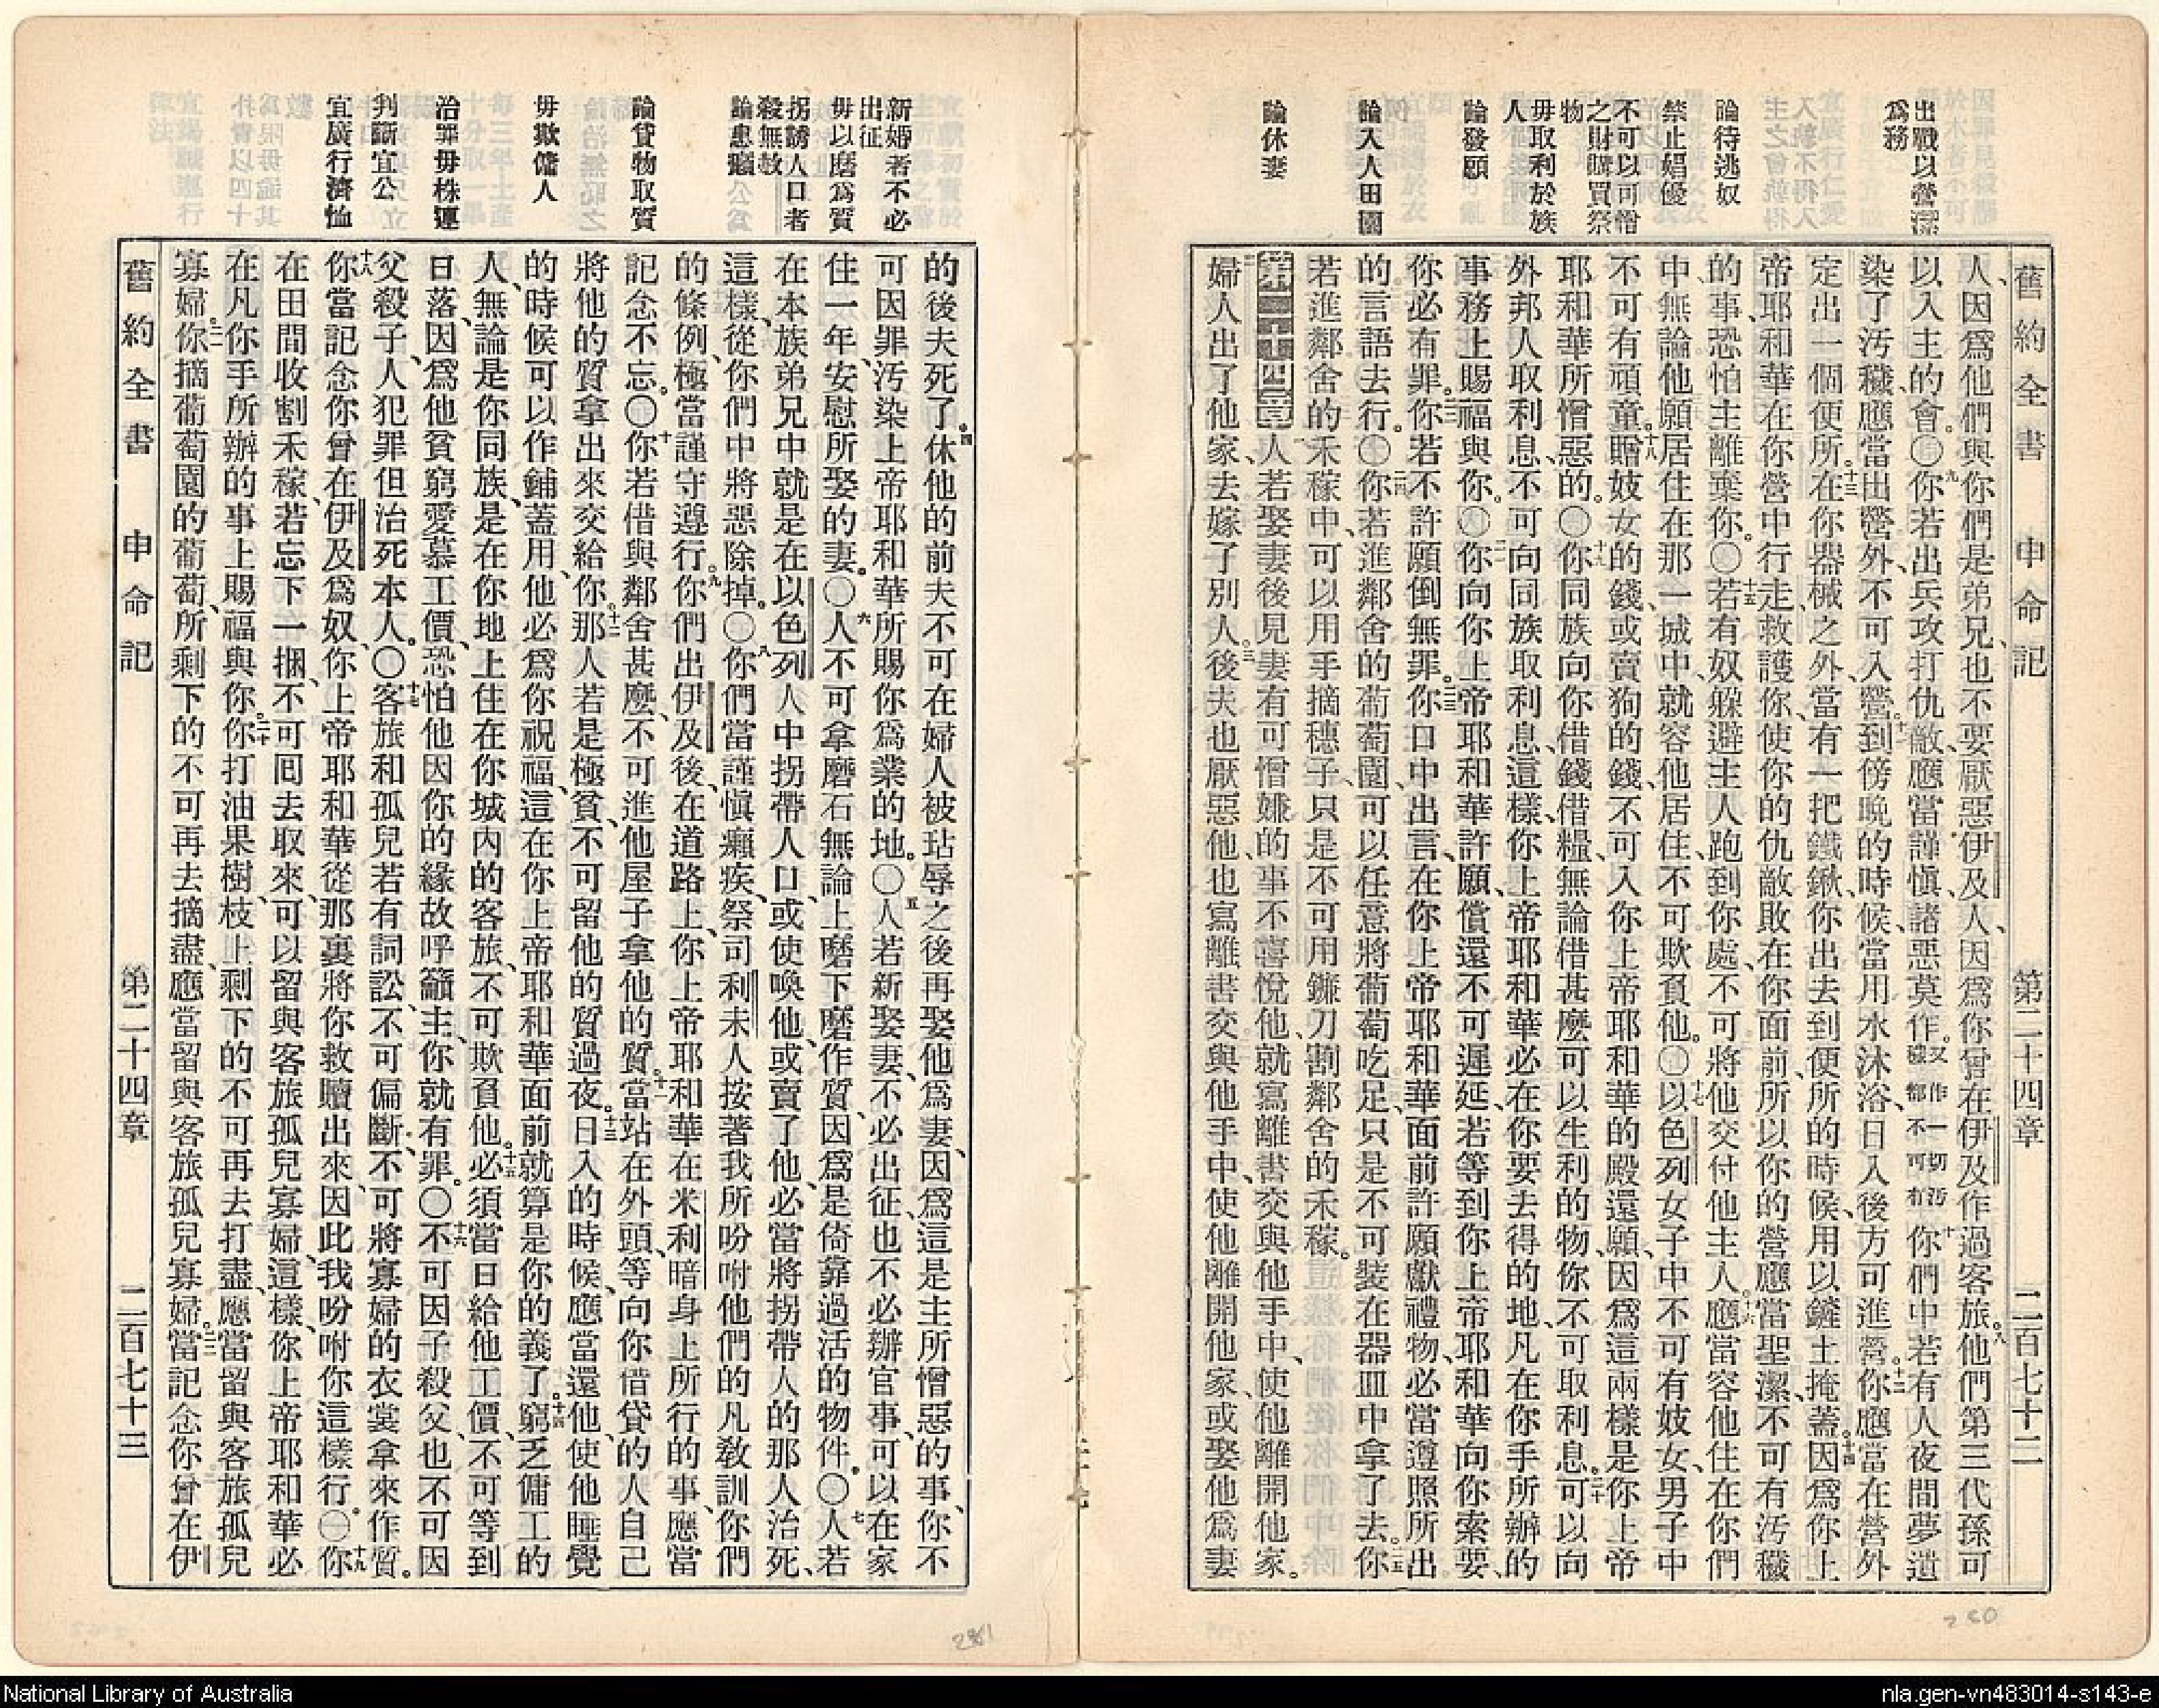 舊約全書 申命記 第二十四章 二百七十二
出戰以營潔
爲務
論待逃奴
禁止娼優
不可以可憎
之財購買祭
物
毋取利於族
人
論發願
論入人田園
論休妻
人、因爲他們與你們是弟兄、也不要厭惡伊及人、因爲你曾在伊及作過客旅。九他們第三代孫可
以入主的會。○九你若出兵攻打仇敵、應當謹慎、諸惡莫作。又作一切汚穢都不可有十你們中若有人夜間夢遺
染了汚穢、應當出營外、不可入營。十一到傍晚的時候、當用水沐浴、日入後方可進營。十二你應當在營外
定出一個便所。十三在你器械之外、當有一把鐵鍬、你出去到便所的時候、用以鏟土掩蓋。十四因爲你上
帝耶和華在你營中行走、救護你、使你的仇敵敗在你面前、所以你的營應當聖潔、不可有汚穢
的事、恐怕主離棄你。○十五若有奴躱避主人跑到你處、不可將他交付他主人。十六應當容他住在你們
中、無論他願居住在那一城中、就容他居住、不可欺負他。○十七以色列女子中不可有妓女、男子中
不可有頑童。十八贈妓女的錢、或賣狗的錢、不可入你上帝耶和華的殿還願、因爲這兩樣是你上帝
耶和華所憎惡的。○十九你同族向你借錢借糧、無論借甚麼可以生利的物、你不可取利息。二十可以向
外邦人取利息、不可向同族取利息、這樣、你上帝耶和華必在你要去得的地、凡在你手所辦的
事務上賜福與你。○二一你向你上帝耶和華許願、償還不可遲延、若等到你上帝耶和華向你索要、
你必有罪。二二你若不許願倒無罪。二三你口中出言、在你上帝耶和華面前許願獻禮物、必當遵照所出
的言語去行。○二四你若進鄰舍的葡萄園、可以任意將葡萄吃足、只是不可裝在器皿中拿了去。二五你
若進鄰舍的禾稼中、可以用手摘穗子、只是不可用鐮刀割鄰舍的禾稼。
第二十四章 一人若娶妻後、見妻有可憎嫌的事、不喜悅他、就寫離書交與他手中、使他離開他家。
二婦人出了他家、去嫁了別人。三後夫也厭惡他、也寫離書交與他手中、使他離開他家、或娶他爲妻
新婚者不必
出征
毋以磨爲質
拐誘人口者
殺無赦
論患癩
論貸物取質
毋欺傭人
治罪毋株連
判斷宜公
宜廣行濟恤
的後夫死了。四休他的前夫不可在婦人被玷辱之後再娶他爲妻、因爲這是主所憎惡的事、你不
可因罪汚染上帝耶和華所賜你爲業的地。○五人若新娶妻、不必出征、也不必辦官事、可以在家
住一年、安慰所娶的妻。○六人不可拿磨石無論上磨下磨作質、因爲是倚靠過活的物件。○七人若
在本族弟兄中、就是在以色列人中拐帶人口、或使喚他、或賣了他、必當將拐帶人的那人治死、
這樣、從你們中將惡除掉。○八你們當謹慎癩疾、祭司利未人按著我所吩咐他們的凡敎訓你們
的條例、極當謹守遵行。九你們出伊及後、在道路上、你上帝耶和華在米利暗身上所行的事、應當
記念不忘。○十你若借與鄰舍甚麼、不可進他屋子拿他的質。十一當站在外頭、等向你借貸的人自己
將他的質拿出來交給你。十二那人若是極貧、不可留他的質過夜。十三日入的時候、應當還他、使他睡覺
的時候可以作鋪蓋用、他必爲你祝福、這在你上帝耶和華面前就算是你的義了。十四窮乏傭工的
人、無論是你同族、是在你地上住在你城內的客旅、不可欺負他。十五必須當日給他工價、不可等到
日落、因爲他貧窮愛慕工價、恐怕他因你的緣故呼籲主、你就有罪。○十六不可因子殺父、也不可因
父殺子、人犯罪但治死本人。○十七客旅和孤兒若有詞訟、不可偏斷、不可將寡婦的衣裳拿來作質。
十八你當記念你曾在伊及爲奴、你上帝耶和華從那裏將你救贖出來、因此我吩咐你這樣行。○十九你
在田間收割禾稼、若忘下一捆、不可囘去取來、可以留與客旅孤兒寡婦、這樣、你上帝耶和華必
在凡你手所辦的事上賜福與你。二十你打油果樹、枝上剩下的不可再去打盡、應當留與客旅孤兒
寡婦。二一你摘葡萄園的葡萄、所剩下的不可再去摘盡、應當留與客旅孤兒寡婦。二二當記念你曾在伊
舊約全書 申命記 第二十四章 二百七十三
281
280
National Library of Australia
nla.gen-vn483014-s143-e